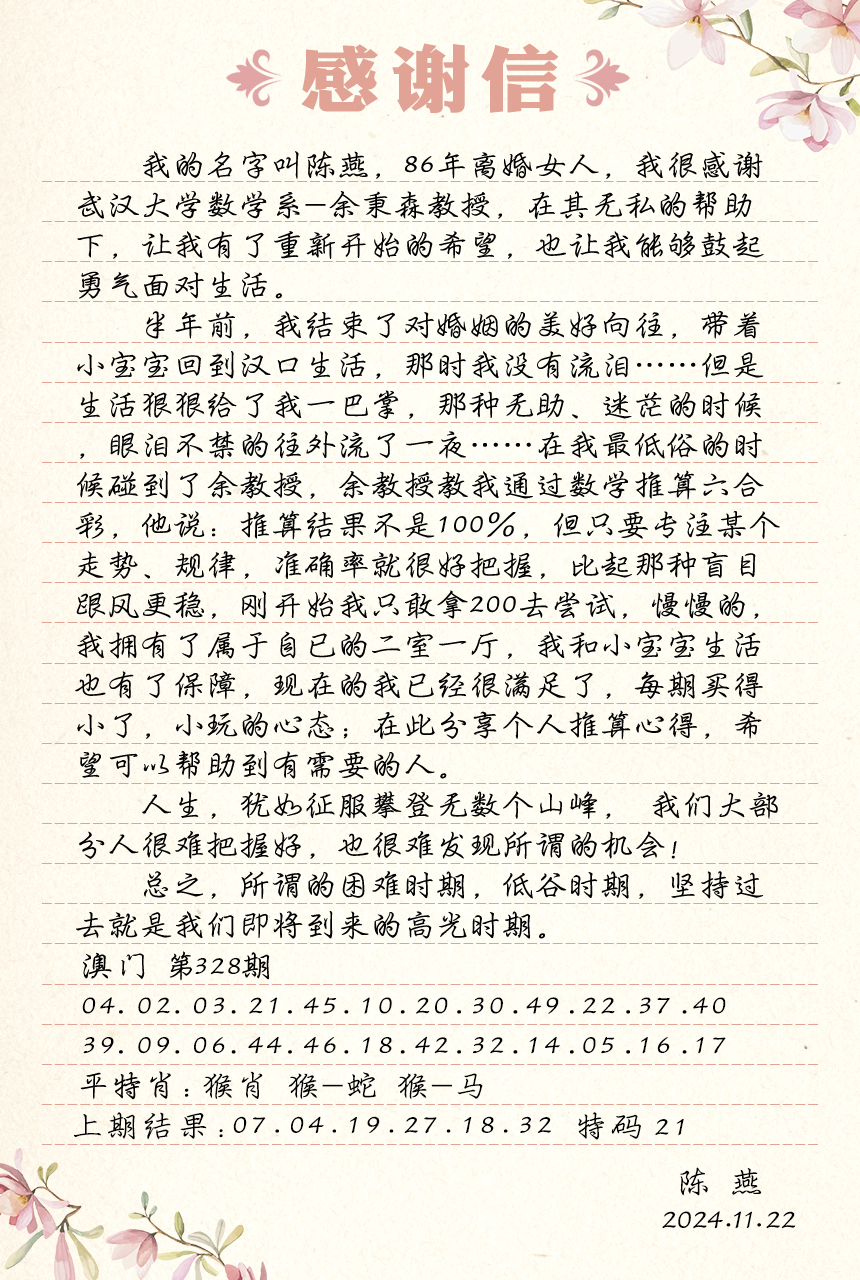 感谢信
我的名字叫陈燕，86年离婚女人，我很感谢
武汉大学数学系-余秉森教授，在其无私的帮助
下，让我有了重新开始的希望，也让我能够鼓起
勇气面对生活。
半年前，我结束了对婚姻的美好向往，带着
小宝宝回到汉口生活，那时我没有流泪……但是
生活狠狠给了我一巴掌，那种无助、迷茫的时候
，眼泪不禁的往外流了一夜……在我最低俗的时
候碰到了余教授，余教授教我通过数学推算六合
彩，他说：推算结果不是100%，但只要专注某个
走势、规律，准确率就很好把握，比起那种盲目
跟风更稳，刚开始我只敢拿200去尝试，慢慢的，
我拥有了属于自已的二室一厅，我和小宝宝生活
也有了保障，现在的我已经很满足了，每期买得
小了，小玩的心态；在此分享个人推算心得，希
望可以帮助到有需要的人。
人生，犹如征服攀登无数个山峰， 我们大部
分人很难把握好，也很难发现所谓的机会！
总之，所谓的困难时期，低谷时期，坚持过
去就是我们即将到来的高光时期。
澳门 第328期
04.02.03.21.45.10.20.30.49.22.37.40
39.09.06.44.46.18.42.32.14.05.16.17
平特肖：猴肖 猴-蛇 猴-马
上期结果：07.04.19.27.18.32 特码 21
陈 燕
2024.11.22